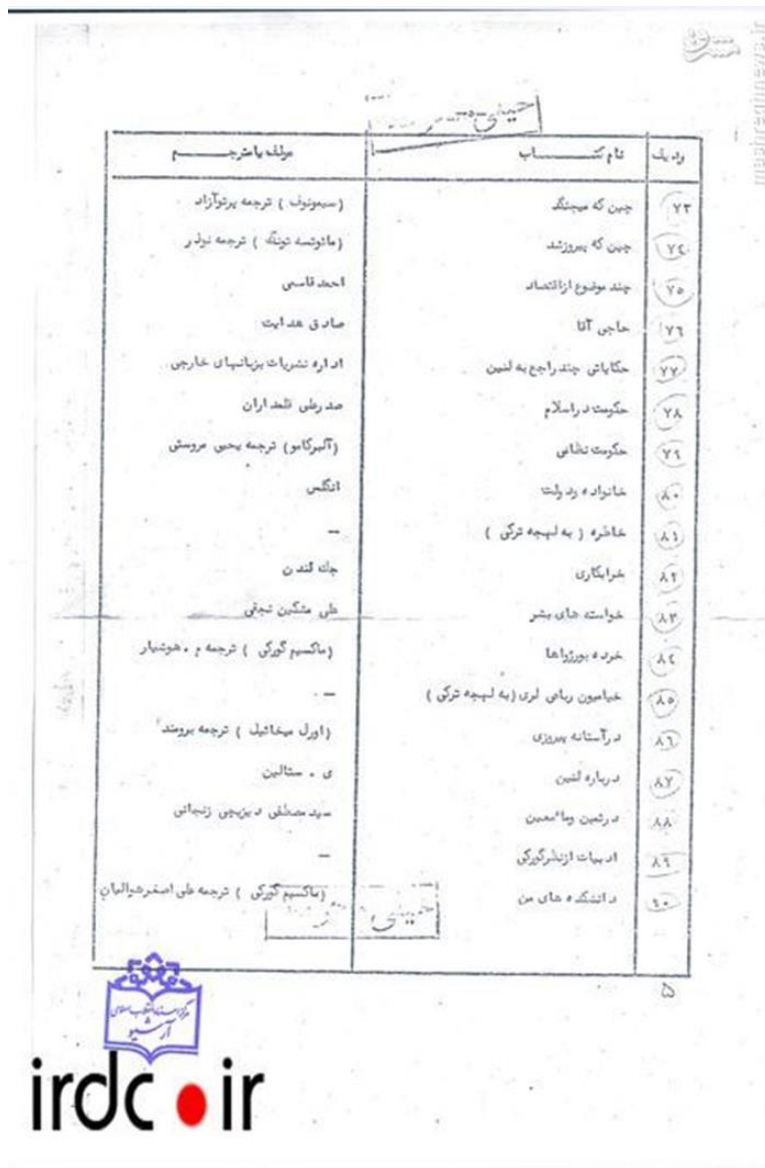 مشرق
mashreghnews.ir
حسینی
ردیف نام کتاب مولف یا مترجم
۷۳ چین که میجنگد (سیمونوف) ترجمه پرتوآزاد
۷۴ چین که پیروزشد (مائوتسه تونگ) ترجمه نوذر
۷۵ چند موضوع ازاقتصاد احمد قاسمی
۷۶ حاجی آقا صادق هدایت
۷۷ حکایاتی چند راجع به لنین اداره نشریات بزبانهای خارجی
۷۸ حکومت دراسلام حیدرعلی قلمداران
۷۹ حکومت نظامی (آلبرکامو) ترجمه یحیی مروستی
۸۰ خانواده ودولت انگلس
۸۱ خاطره (به لهجه ترکی) —
۸۲ خرابکاری جک لندن
۸۳ خواسته های بشر علی مشگین نجفی
۸۴ خرده بورژواها (ماکسیم گورکی) ترجمه م . هوشیار
۸۵ خیامون رباعی لری (به لهجه ترکی) —
۸۶ درآستانه پیروزی (اورل میخائیل) ترجمه برومند
۸۷ درباره لنین ی . ستالین
۸۸ درثمین وماءمعین سید مصطفی دیزیجی زنجانی
۸۹ ادبیات ازنظرگورکی —
۹۰ دانشکده های من (ماکسیم گورکی) ترجمه علی اصغرهوالیان
حسینی
۵
مرکز اسناد انقلاب اسلامی
آرشیو
irdc.ir